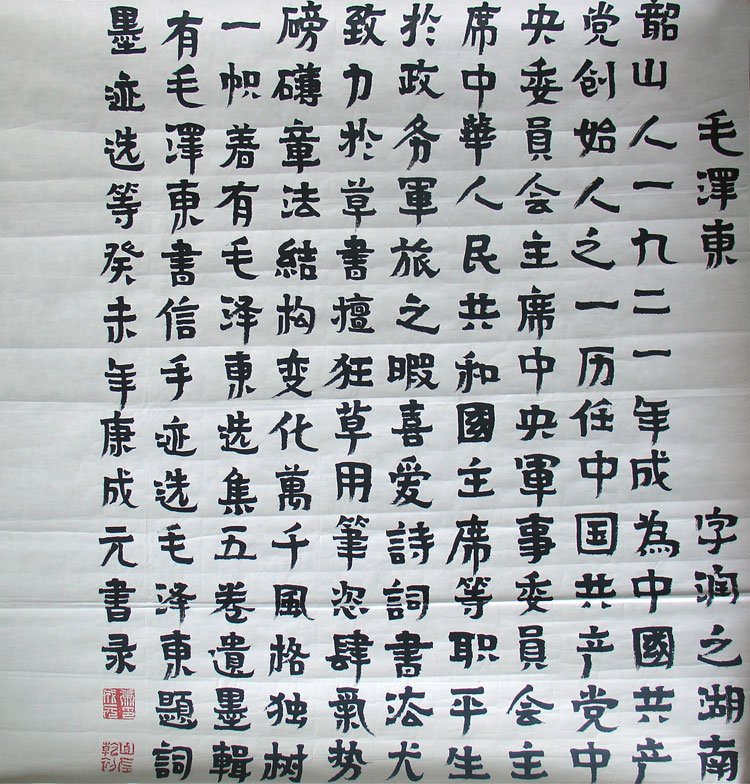 毛澤東 字润之湖南
韶山人一九二一年成為中國共产
党创始人之一历任中国共产党中
央委員会主席中央軍事委員会主
席中華人民共和國主席等职平生
於政务軍旅之暇喜爱詩詞書法尤
致力於草書擅狂草用筆恣肆氣势
磅礴章法結构变化萬千風格独树
一帜着有毛泽東选集五卷遺墨輯
有毛澤東書信手迹选毛泽東題詞
墨迹选等癸未年康成元書录